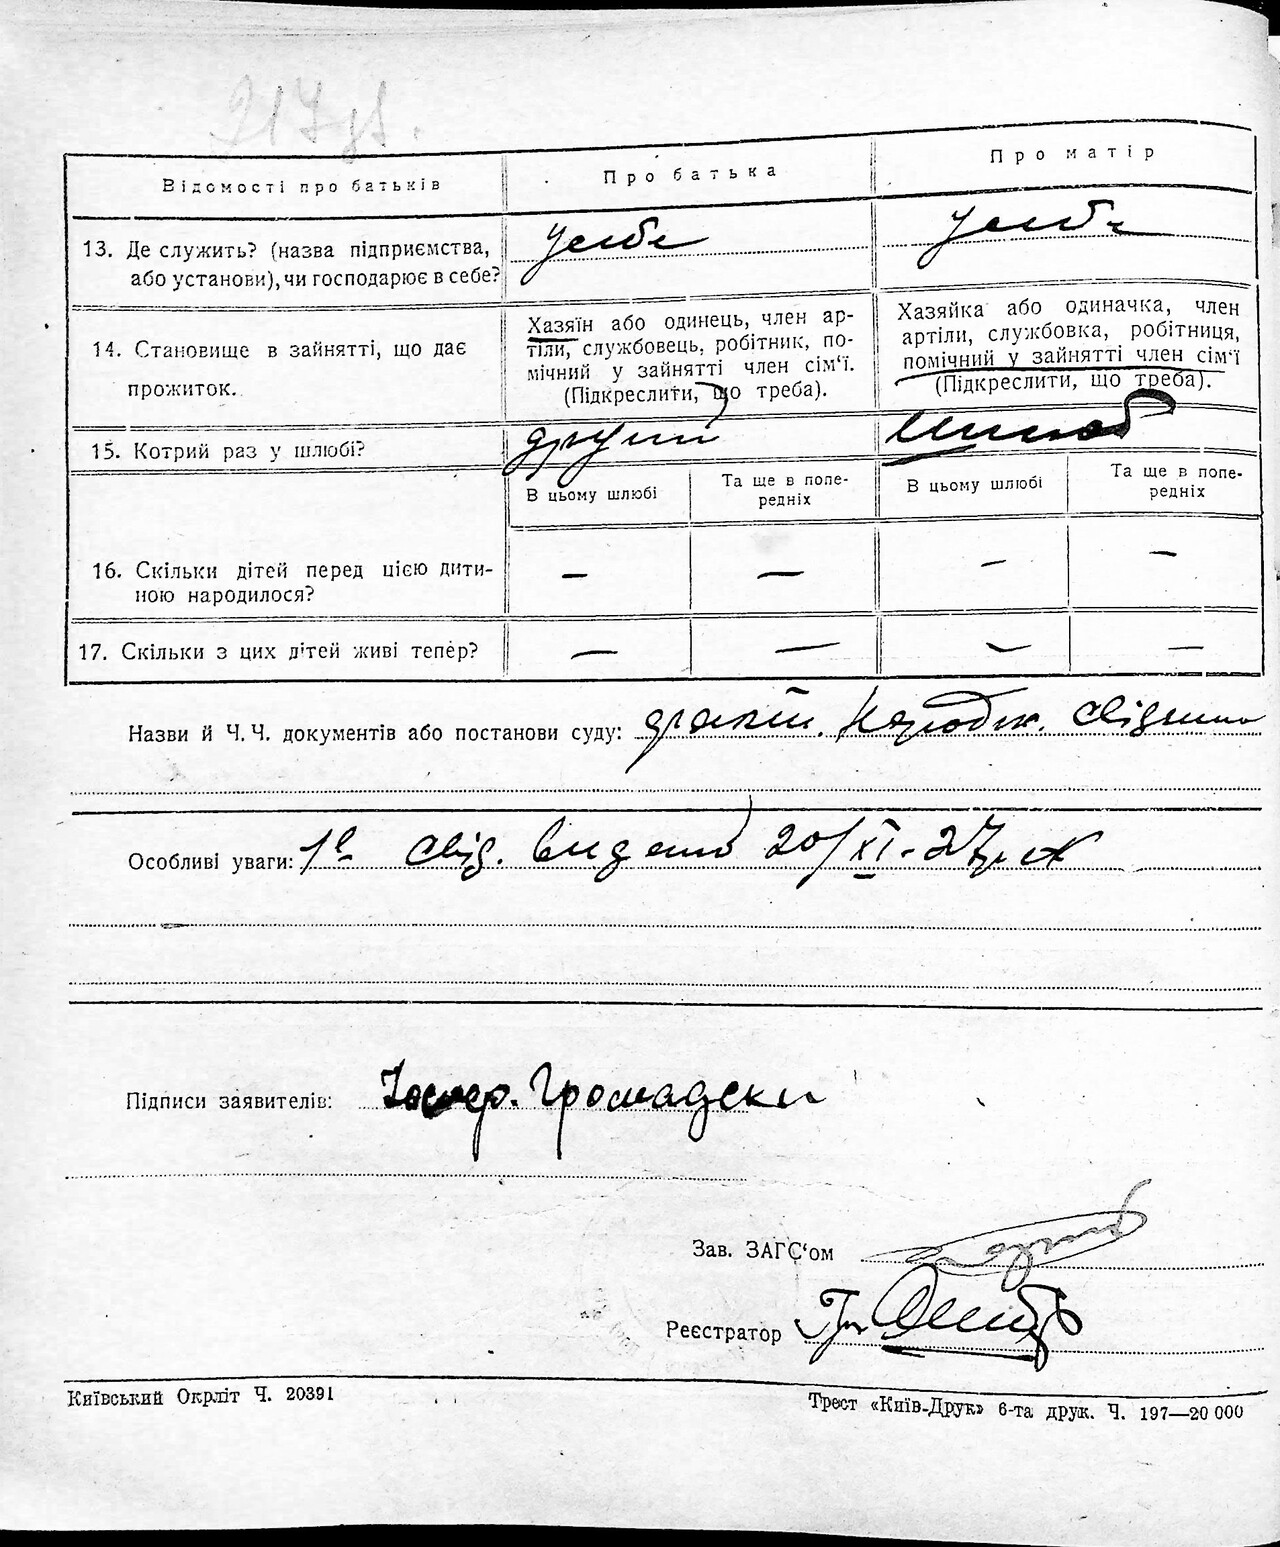 217 зв.
Відомості про батьків
Про батька
Про матір
13. Де служить? (назва підприємства,
або установи), чи господарює в себе?
у себе
у себе
14. Становище в зайнятті, що дає
прожиток.
Хазяїн або одинець, член ар-
тіли, службовець, робітник, по-
мічний у зайнятті член сім‘ї.
(Підкреслити, що треба).
Хазяйка або одиначка, член
артіли, службовка, робітниця,
помічний у зайнятті член сім‘ї
(Підкреслити, що треба).
15. Котрий раз у шлюбі?
другий
В цьому шлюбі
Та ще в попе-
редніх
В цьому шлюбі
Та ще в попе-
редніх
16. Скільки дітей перед цією дити-
ною народилося?
— — — —
17. Скільки з цих дітей живі тепер?
— — — —
Назви й Ч. Ч. документів або постанови суду:
Особливі уваги: свід. видано 20/XI-27р.
Підписи заявителів: Громадски
Зав. ЗАГС‘ом
Реєстратор
Київський Окрліт Ч. 20391
Трест «Київ-Друк» 6-та друк. Ч. 197—20 000